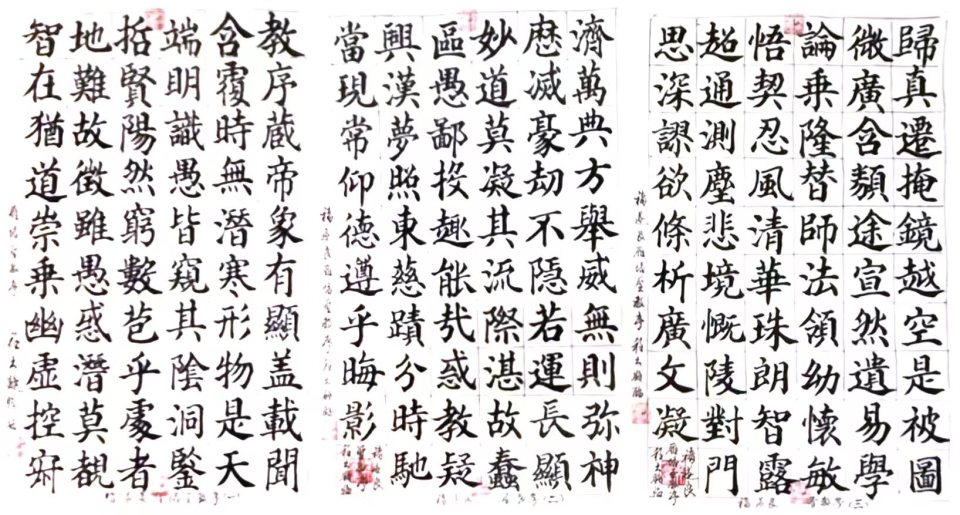 教序蔵帝象有顯盖載聞
含覆時無潛寒形物是天
端明識愚皆窺其陰洞鑒
括賢陽然窮數苞乎處者
地難故徵雖愚惑潛莫覩
智在猶道崇乗幽虛控寂
濟萬典方舉威無則弥神
歴滅豪劫不隱若運長顯
妙道莫凝其流際湛故蠢
區愚鄙投趣能惑教疑
興漢夢照東慈蹟分時馳
當現常仰德遵乎晦影
歸真遷掩鏡越空是被圖
微廣含類途宣然遺易學
論乗隆替師法領幼懷敏
悟契忍風清華珠朗智露
超通測塵悲境慨陵對門
思深謬欲條析廣文凝